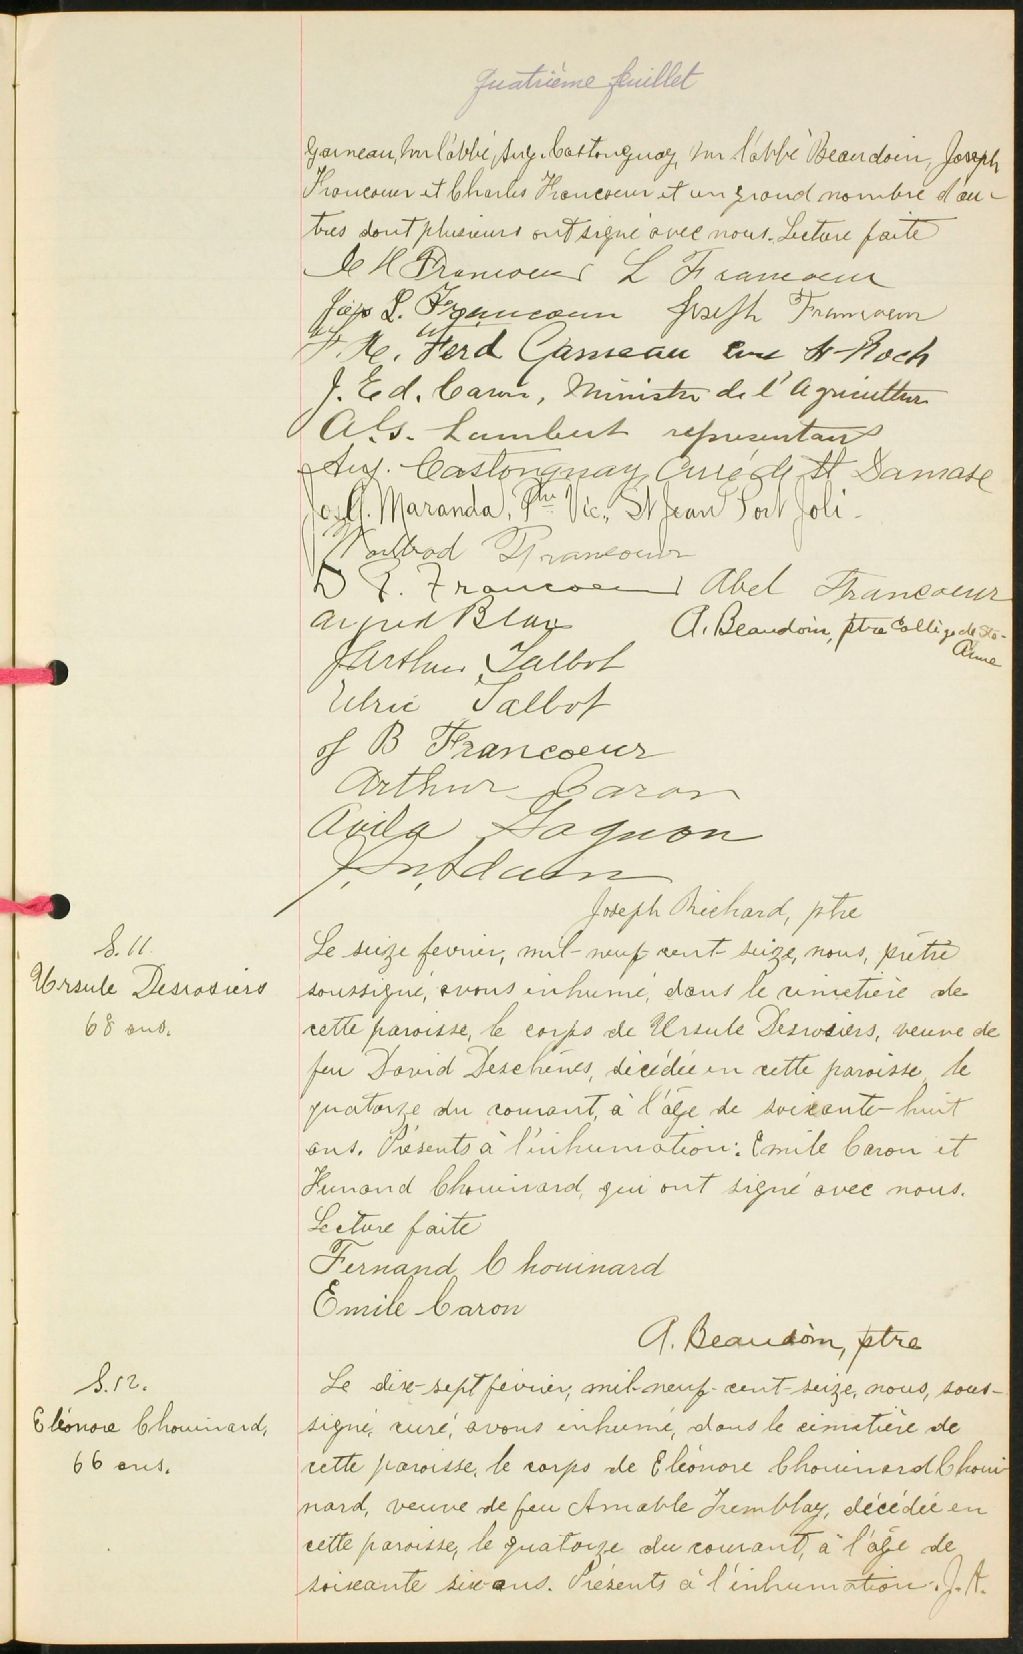 Quatrième feuillet
Garneau, Mr l'abbé Aug. Castonguay, Mr l'abbé Beaudoin, Joseph
Francoeur et Charles Francoeur et un grand nombre d'au-
tres dont plusieurs ont signé avec nous. Lecture faite
Francoeur L Francoeur
Jos L. Francoeur Joseph Francoeur
Ferd Garneau curé St-Roch
J. Ed. Caron, Ministre de l'Agriculture
Lambert représentant
Aug. Castonguay Curé de St Damase
Jos. G. Maranda, Ptre Vic., St Jean Port Joli.
Francoeur
Francoeur Abel Francoeur
Alfred Blais A. Beaudoin, ptre Collège de Ste-
Anne
J Arthur Talbot
Ulric Talbot
J B Francoeur
Arthur Caron
Avila Gagnon
Adam
Joseph Richard, ptre
S. 11.
Ursule Desrosiers
68 ans.
Le seize fevrier, mil-neuf cent-seize, nous, prêtre
soussigné, avons inhumé, dans le cimetière de
cette paroisse, le corps de Ursule Desrosiers, veuve de
feu David Deschênes, décédée en cette paroisse, le
quatorze du courant, à l'âge de soixante-huit
ans. Présents à l'inhumation: Emile Caron et
Fernand Chouinard, qui ont signé avec nous.
Lecture faite
Fernand Chouinard
Emile Caron
A. Beaudoin, ptre
S. 12.
Eléonore Chouinard,
66 ans.
Le dix-sept février, mil-neuf-cent-seize, nous, sous-
signé, curé, avons inhumé, dans le cimetière de
cette paroisse, le corps de Eléonore Chouinard Choui-
nard, veuve de feu Amable Tremblay, décédée en
cette paroisse, le quatorze du courant, à l'âge de
soixante six ans. Présents à l'inhumation: J. A.